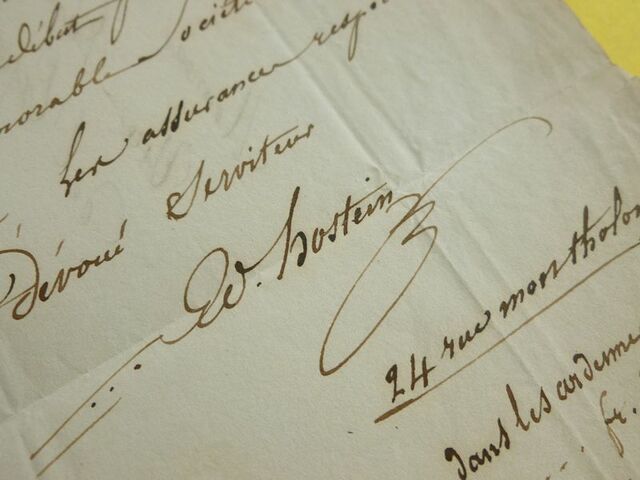 début
Société
les assurances respe
Dévoué Serviteur
Ed. hostein
24 rue montholon
dans les ardenne
fr.